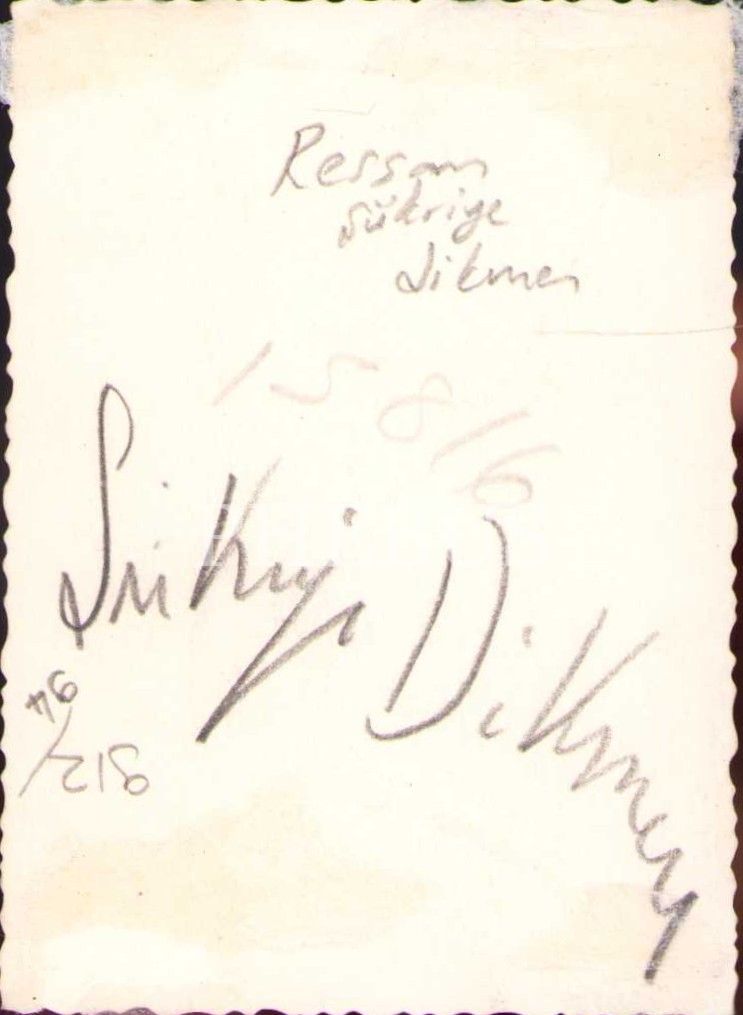 Ressam
Şükriye
Dikmen
15 8 16
Şükriye Dikmen